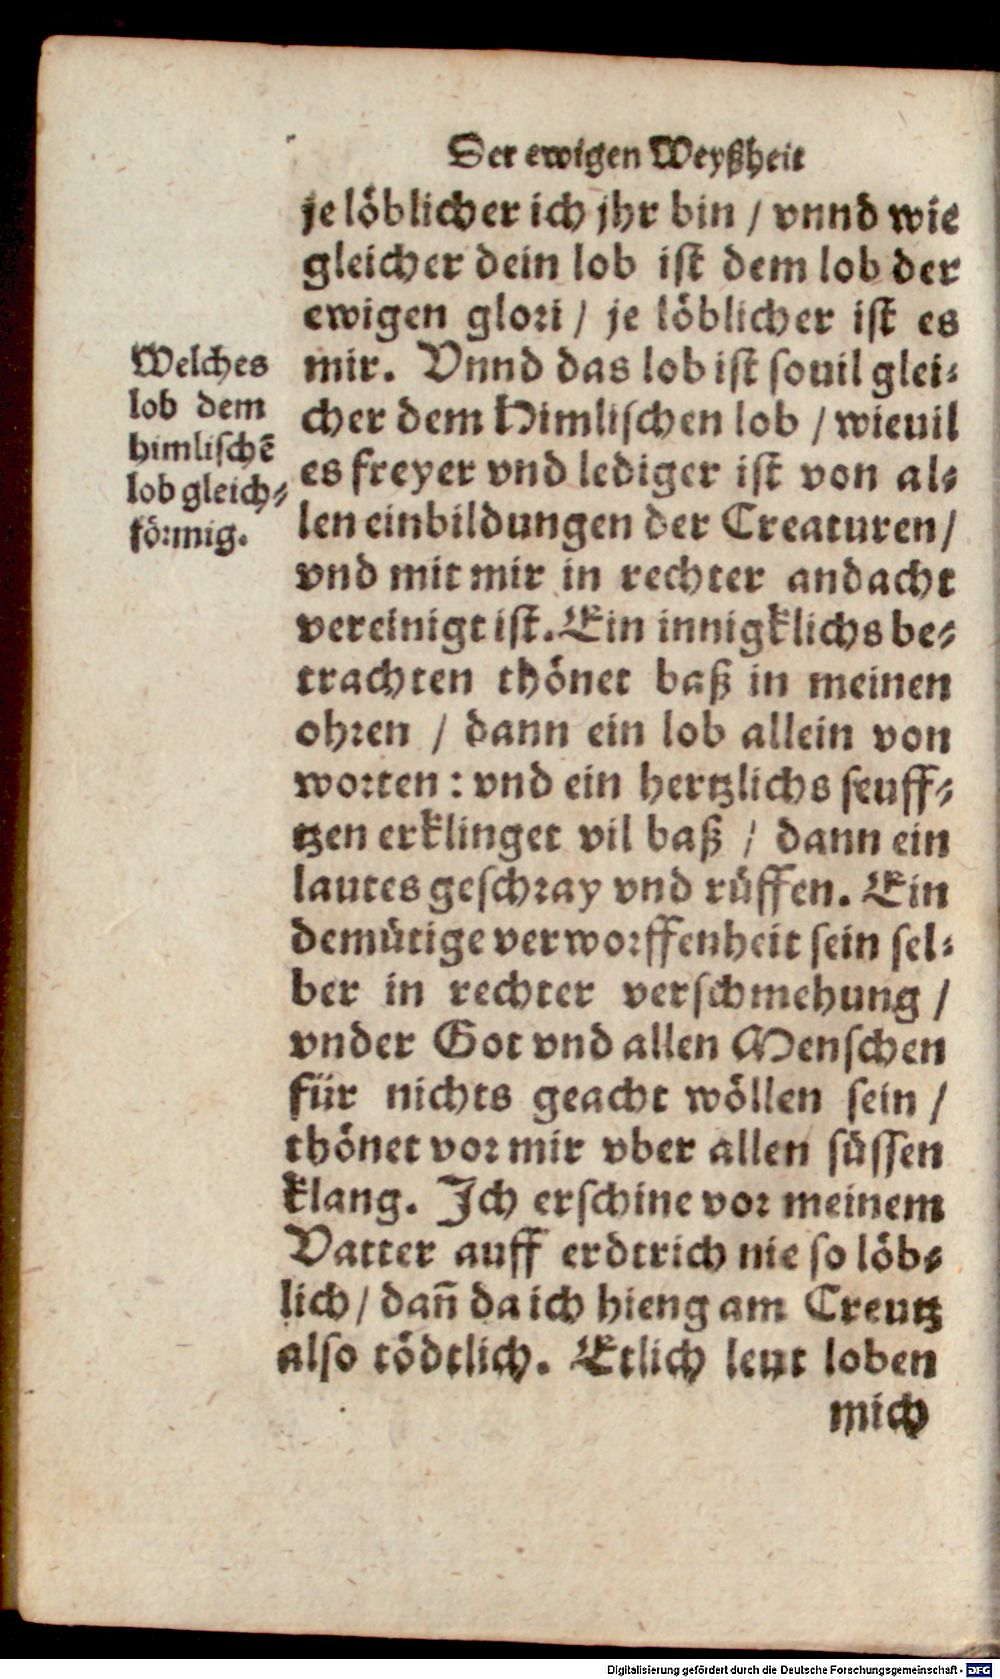 Der ewigen Weyßheit
je löblicher ich jhr bin / vnnd wie
gleicher dein lob ist dem lob der
ewigen glori / je löblicher ist es
mir. Vnnd das lob ist souil glei-
cher dem Himlischen lob / wieuil
es freyer vnd lediger ist von al-
len einbildungen der Creaturen /
vnd mit mir in rechter andacht
vereinigt ist. Ein innigklichs be-
trachten thönet baß in meinen
ohren / dann ein lob allein von
worten : vnd ein hertzlichs seuff-
tzen erklinget vil baß / dann ein
lautes geschray vnd rüffen. Ein
demütige verworffenheit sein sel-
ber in rechter verschmehung /
vnder Got vnd allen Menschen
für nichts geacht wöllen sein /
thönet vor mir vber allen süssen
klang. Ich erschine vor meinem
Vatter auff erdtrich nie so löb-
lich / dañ da ich hieng am Creutz
also tödtlich. Etlich leut loben
mich
Welches
lob dem
himlischē
lob gleich-
förmig.
Digitalisierung gefördert durch die Deutsche Forschungsgemeinschaft - DFG